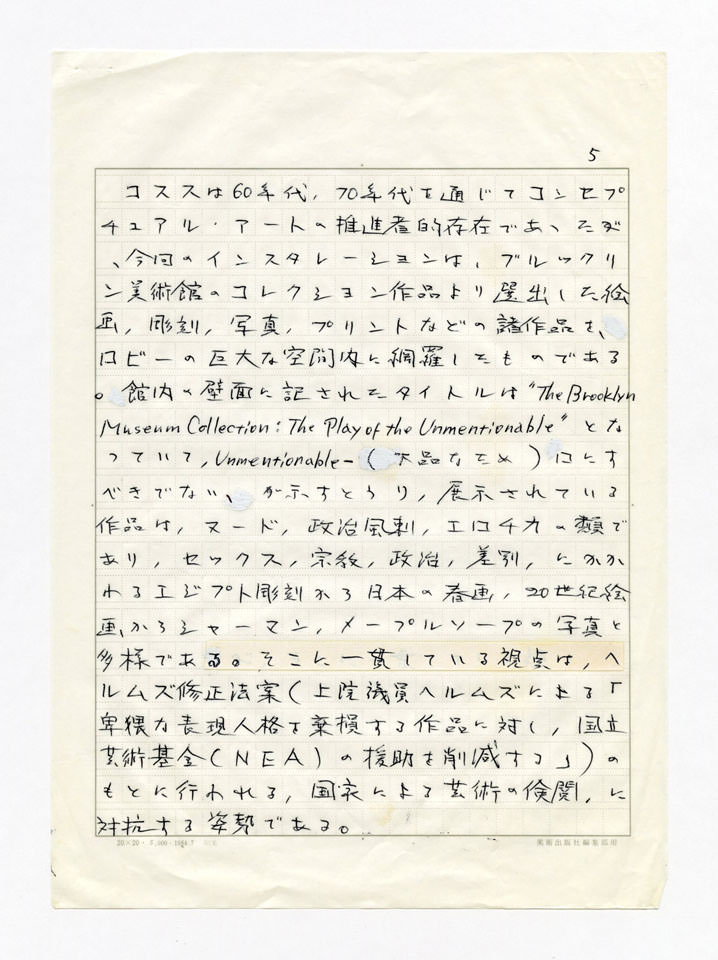 5
コススは60年代，70年代を通じてコンセプ
チュアル・アートの推進者的存在であったが
、今回のインスタレーションは，ブルックリ
ン美術館のコレクション作品より選出した絵
画，彫刻，写真，プリントなどの諸作品を、
ロビーの巨大な空間内に網羅したものである
。館内の壁面に記されたタイトルは“The Brooklyn
Museum Collection: The Play of the Unmentionable” とな
っていて，Unmentionable-（下品なため）口にす
べきでない、が示すとうり，展示されている
作品は，ヌード，政治風刺，エロチカの類で
あり，セックス，宗教，政治，差別，にかか
わるエジプト彫刻から日本の春画，20世紀絵
画からシャーマン，メープルソープの写真と
多様である。そこに一貫している視点は，ヘ
ルムズ修正法案（上院議員ヘルムズによる「
卑猥な表現人格を棄損する作品に対し，国立
芸術基金（NEA）の援助を削減する」）の
もとに行われる，国家による芸術の倹閲，に
対抗する姿勢である。
20×20・5,000・1984.7
美術出版社編集部用